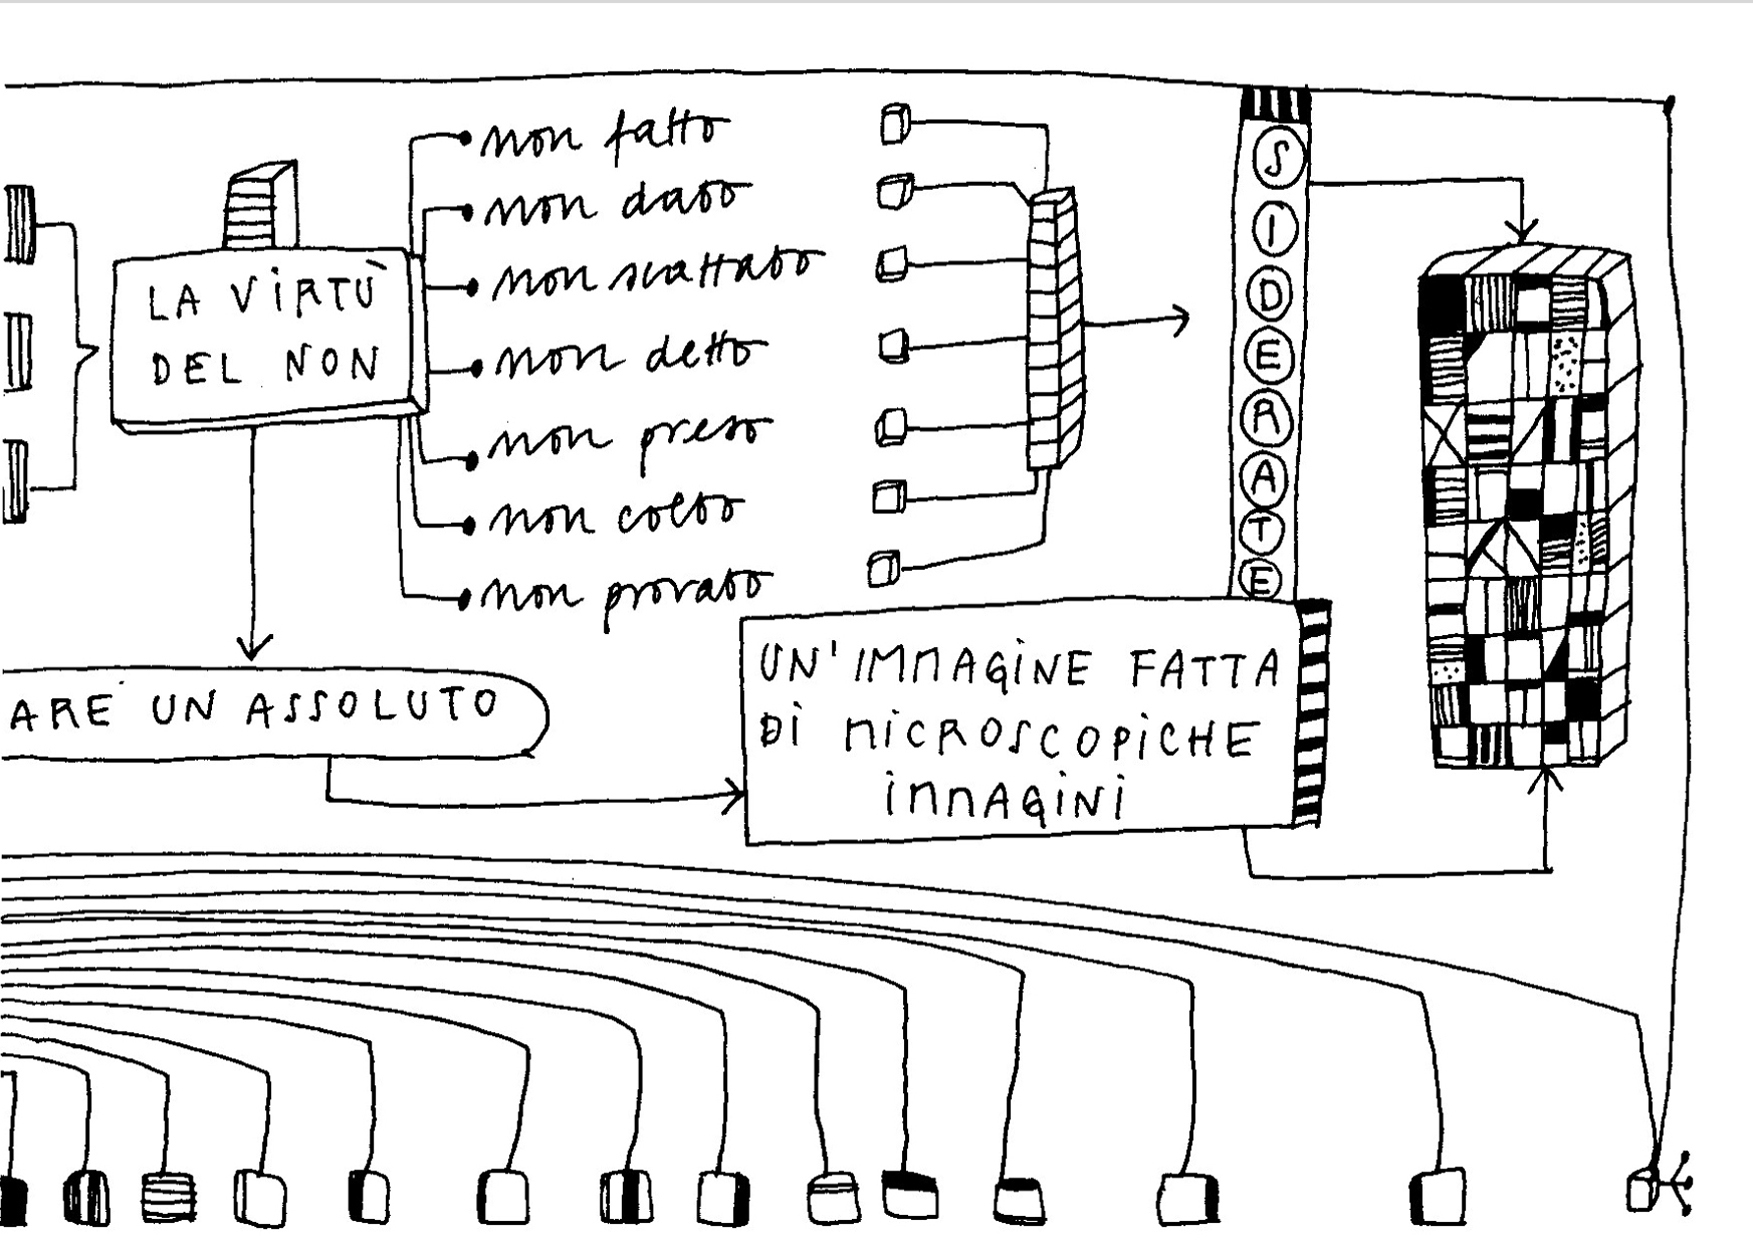 LA VIRTÙ
DEL NON
non fatto
non dato
non scattato
non detto
non preso
non colto
non provato
SIDERATE
ARE UN ASSOLUTO
UN'IMMAGINE FATTA
DI MICROSCOPICHE
IMMAGINI